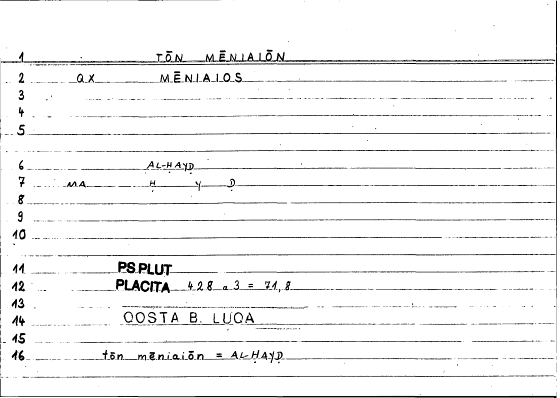 1 TŌN MĒNIAIŌN
2 QX MĒNIAIOS
3
4
5
6 AL-ḤAYḌ
7 MA Ḥ Y Ḍ
8
9
10
11 PS.PLUT
12 PLACITA 428 a 3 = 71,8
13
14 QOSṬA B. LUQA
15
16 tōn mēniaiōn = AL-ḤAYḌ